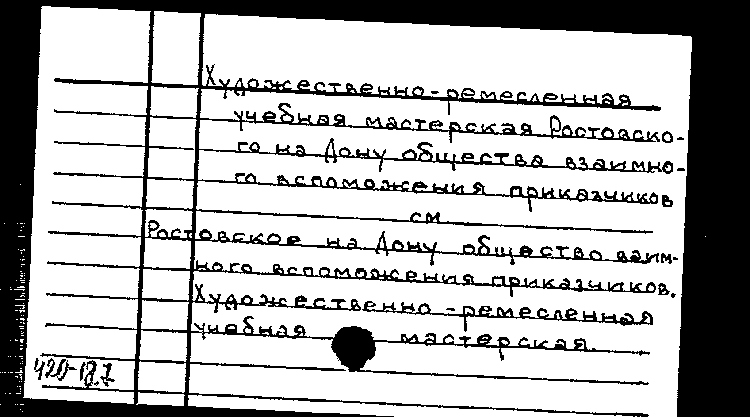 Художественно-ремесленная
учебная мастерская Ростовско-
го на Дону общества взаимно-
го вспоможения приказчиков
см
Ростовское на Дону общество взаим-
ного вспоможения приказчиков.
Художественно-ремесленная
учебная мастерская.